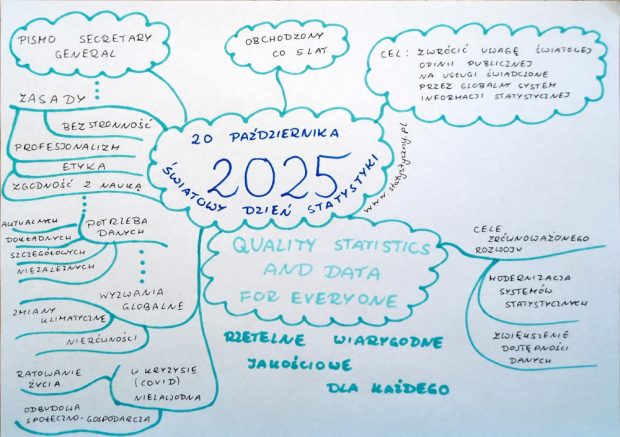 PISMO SECRETARY
GENERAL
OBCHODZONY
CO 5 LAT
CEL: ZWRÓCIĆ UWAGĘ ŚWIATOWEJ
OPINII PUBLICZNEJ
NA USŁUGI ŚWIADCZONE
PRZEZ GLOBALNY SYSTEM
INFORMACJI STATYSTYCZNEJ
ZASADY
BEZSTRONNOŚĆ
PROFESJONALIZM
ETYKA
ZGODNOŚĆ Z NAUKĄ
20 PAŹDZIERNIKA
2025
ŚWIATOWY DZIEŃ STATYSTYKI
www.statystyczny.pl
POTRZEBA
DANYCH
AKTUALNYCH
DOKŁADNYCH
SZCZEGÓŁOWYCH
NIEZALEŻNYCH
WYZWANIA
GLOBALNE
ZMIANY
KLIMATYCZNE
NIERÓWNOŚCI
W KRYZYSIE
(COVID)
NIEZAWODNA
RATOWANIE
ŻYCIA
ODBUDOWA
SPOŁECZNO-GOSPODARCZA
QUALITY STATISTICS
AND DATA
FOR EVERYONE
RZETELNE WIARYGODNE
JAKOŚCIOWE
DLA KAŻDEGO
CELE
ZRÓWNOWAŻONEGO
ROZWOJU
MODERNIZACJA
SYSTEMÓW
STATYSTYCZNYCH
ZWIĘKSZENIE
DOSTĘPNOŚCI
DANYCH